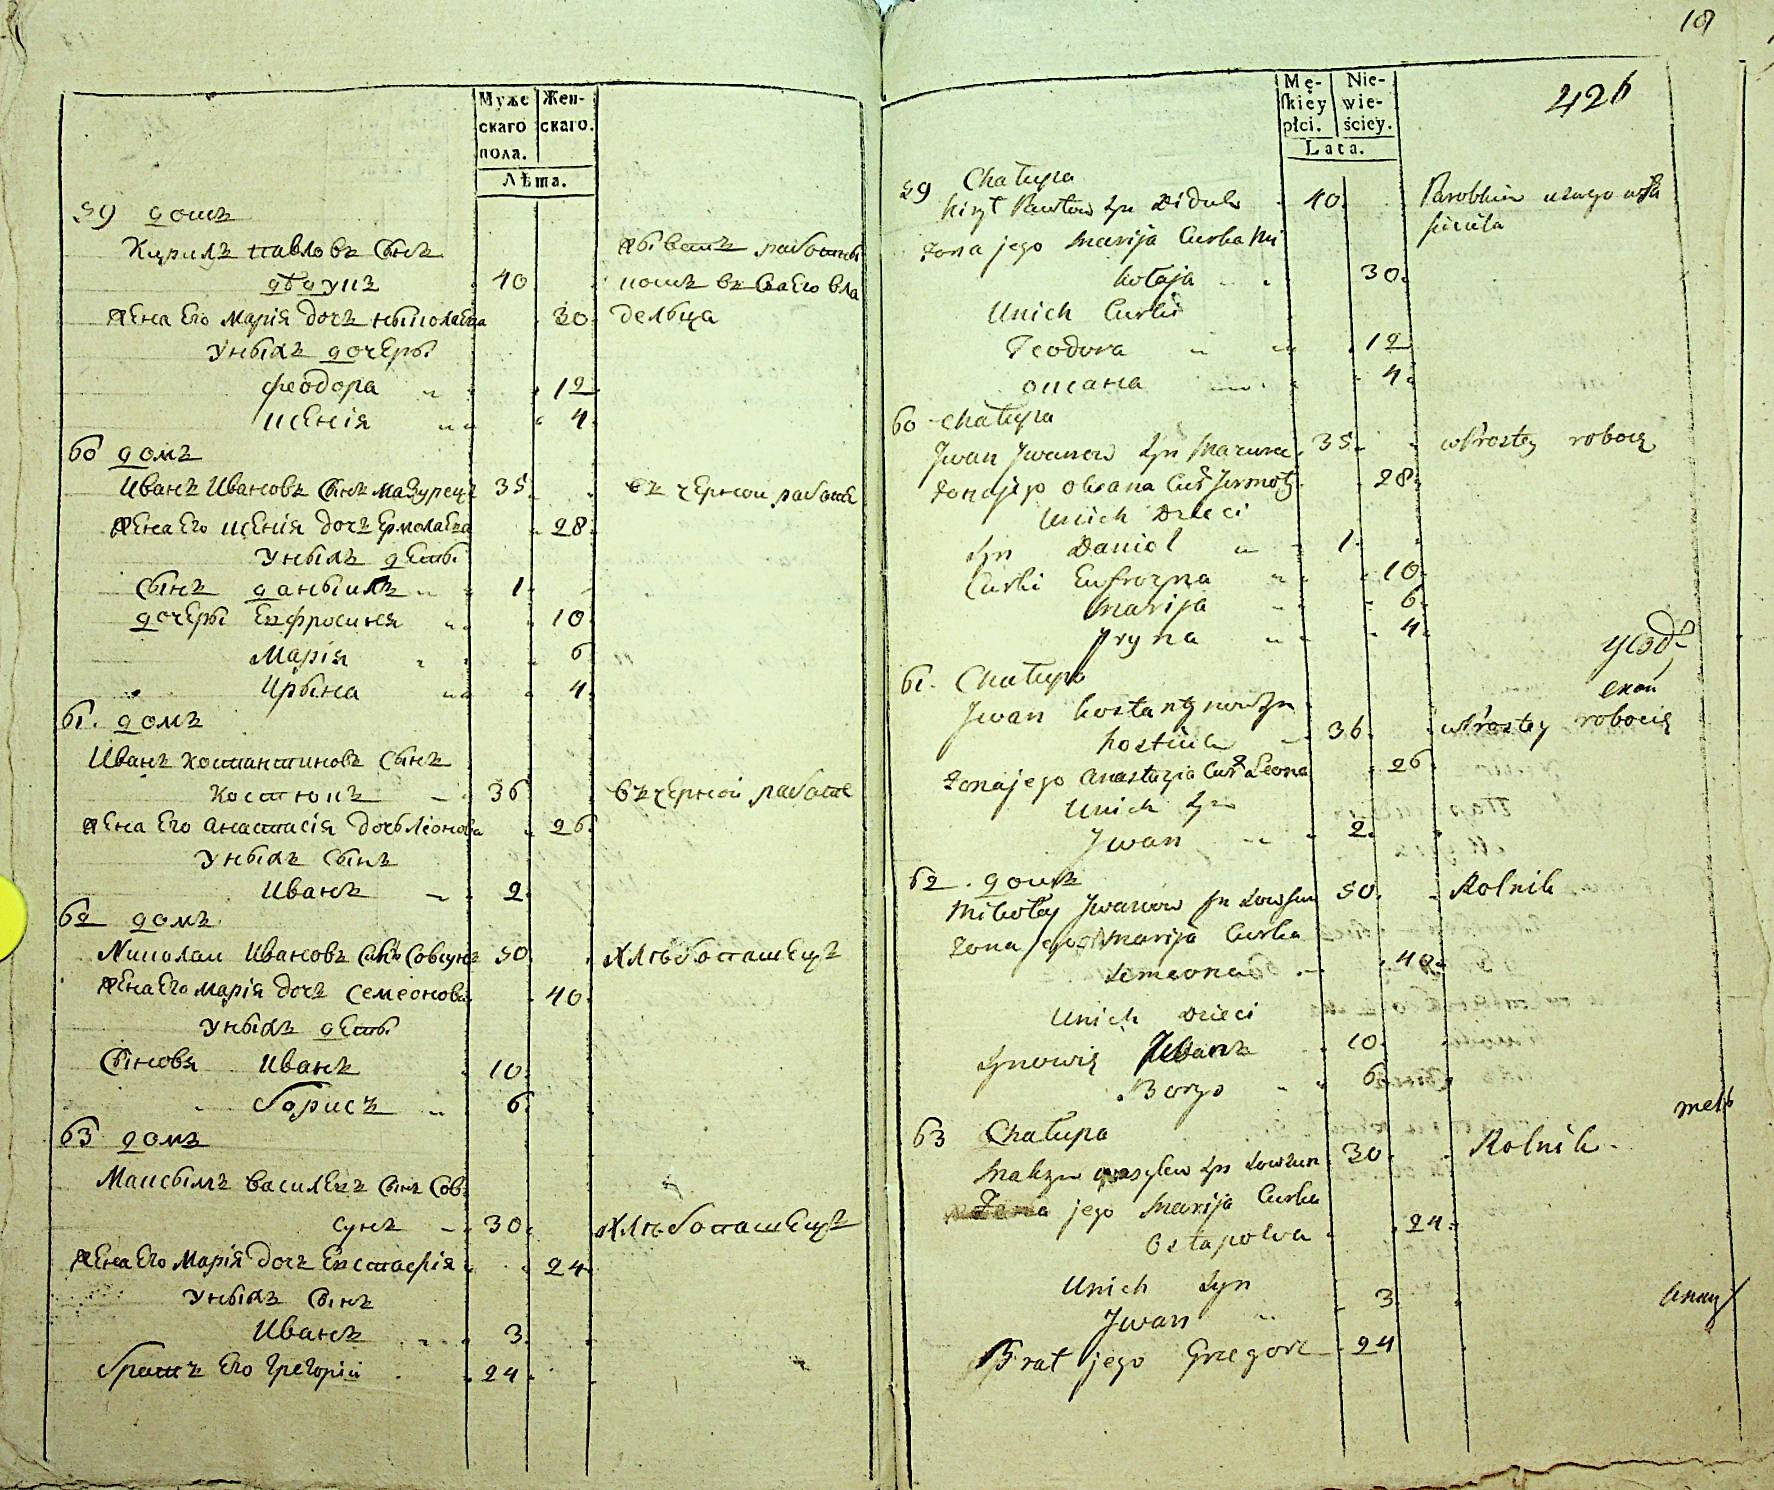 Муже
скаго
пола.
Жен-
скаго.
Лѣта.
59 домъ
Кирилъ Павловъ сынъ
дѣдукъ 40
жена его Марія дочь Николаева 30 дельца
у ныхъ дочеры
Феодора 12
Ксенія 4
60 домъ
Иванъ Ивановъ сынъ Мазурецъ 35 въ черной работе
жена его Ксенія дочь Ермолаева 28
у ныхъ деты
сынъ Даныилъ 1
дочеры Евфросинья 10
Марія 6
Ирына 4
61. домъ
Иванъ Костантиновъ сынъ
Костюкъ 36 въ черной работе
жена его Анастасія дочь Леонова 26
у ныхъ сынъ
Иванъ 2
62 домъ
Николай Ивановъ сынъ Совсунъ 50 хлѣбопашецъ
жена его Марія дочь Семеонова 40
у ныхъ деты
сыновя Иванъ 10
Борисъ 6
63 домъ
Максымъ Василевъ сынъ Сов-
сунъ 30 хлѣбопашецъ
жена его Марія дочь Евстафія 24
у ныхъ сынъ
Иванъ 3
братъ его Григорій 24
18
426
Mę-
skiey
płci.
Nie-
wie-
ściey.
Lata.
59 Chałupa
Kirył Pawłow syn Diduk 40
żona jego Marija Curka Mi
kołaja 30
Unich Curki
Teodora 12
Oxana 4
60 Chałupa
Jwan Jwanow syn Mazurec 35 w Prostey robocie
żona jego Oxana Cur Jermoły 28
Unich Dzieci
syn Daniel 1
Curki Eufrozyna 10
Marija 6
Jryna 4
61. Chałupa
Jwan Kostantynow syn
Kostiuk 36 w Prostey robocie
żona jego Anastazia Cur Leona 26
Unich syn
Jwan 2
62. домъ
Mikołay Jwanow syn Sowsun 50 Rolnik
żona jego Marija Curka
Semeona 40
Unich Dzieci
synowie Иванъ 10
Borys 6
63 Chałupa
Maksym Wasylew syn Sowsun 30 Rolnik
Żona jego Marija Curka
Ostapowa 24
Unich syn
Jwan 3
Brat jego Grzegorz 24